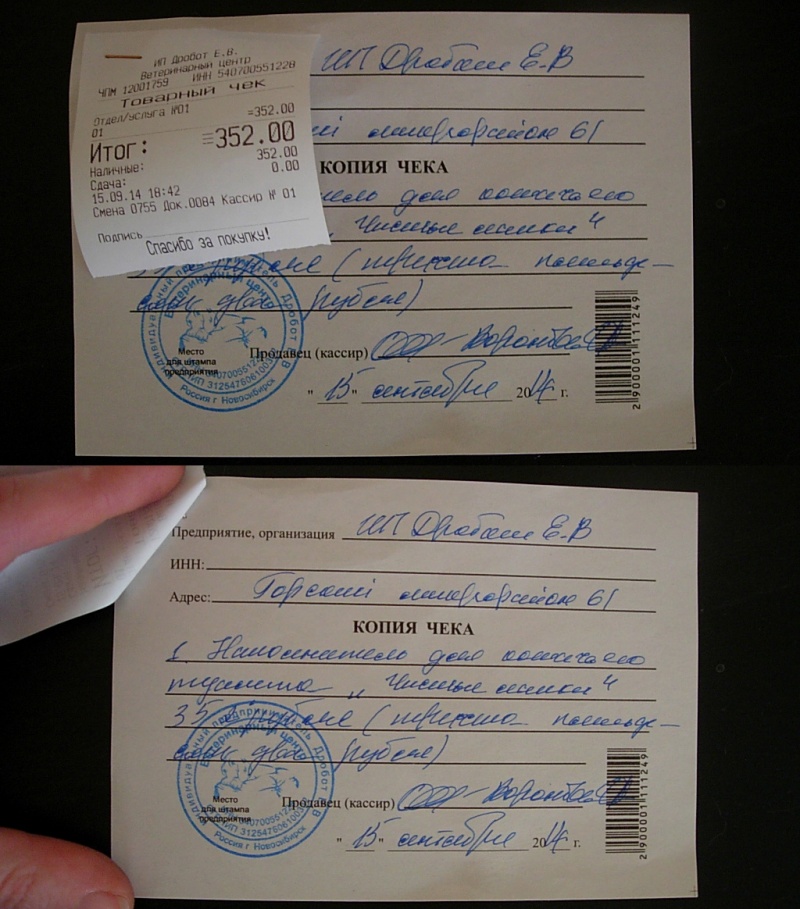 ИП Дробот Е.В.
Ветеринарный центр
ЧПМ 12001759 ИНН 540700551228
Товарный чек
Отдел/услуга №01
01 =352.00
Итог: =352.00
Наличные: 352.00
Сдача: 0.00
15.09.14 18:42
Смена 0755 Док.0084 Кассир № 01
Подпись
Спасибо за покупку!
ИП Дробот Е.В
микрорайон 61
КОПИЯ ЧЕКА
для кошачьего
"Чистые лапки"
(триста пятьде-
сят два рубля)
Место
для штампа
предприятия
Продавец (кассир)
"15" сентября 2014 г.
2 900001 111249
Предприятие, организация ИП Дробот Е.В
ИНН:
Адрес: Горский микрорайон 61
КОПИЯ ЧЕКА
1. Наполнитель для кошачьего
туалета "Чистые лапки"
(триста пятьде-
сят два рубля)
Место
для штампа
предприятия
Продавец (кассир)
"15" сентября 2014 г.
2 900001 111249
Индивидуальный предприниматель Дробот Е В
Ветеринарный центр
Россия г Новосибирск